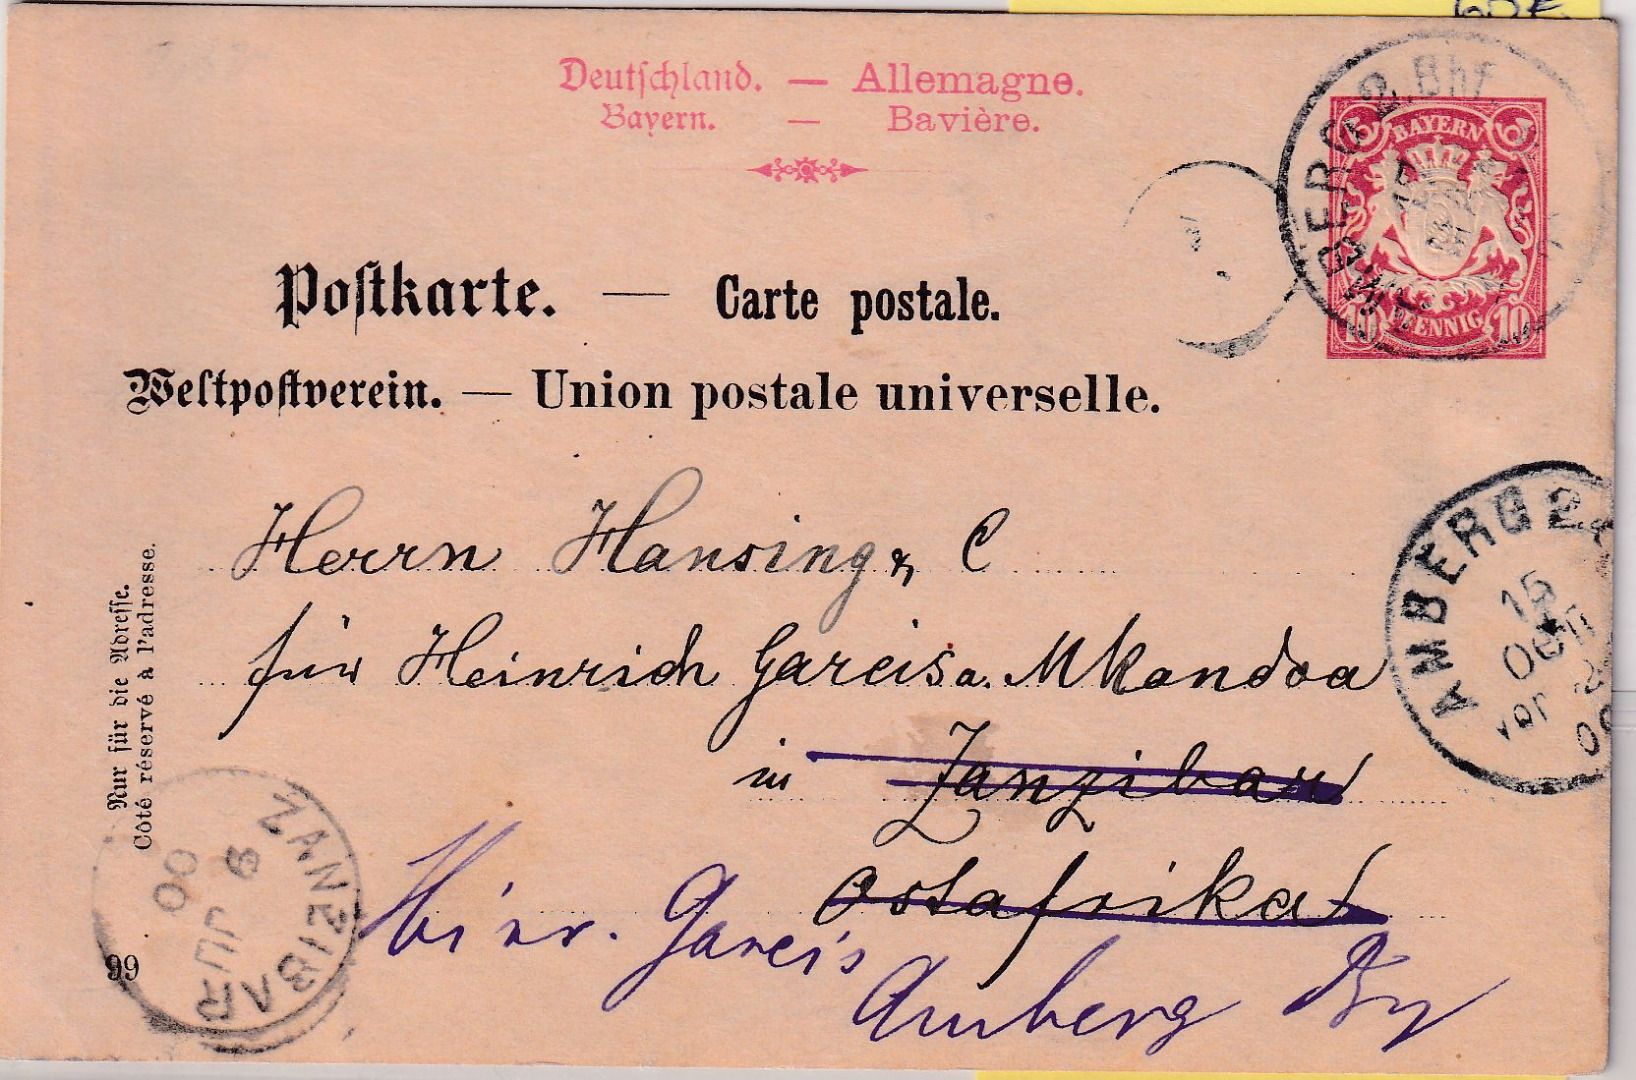 Deutschland. — Allemagne.
Bayern. — Bavière.
BERG 2. Bhf.
BAYERN
10 PFENNIG 10
Postkarte. — Carte postale.
Weltpostverein. — Union postale universelle.
Nur für die Adresse.
Côté réservé à l'adresse.
Herrn Hansing & C
für Heinrich Gareis a. Mkondoa
in Zanzibar
Ostafrika
Hinr. Gareis
Amberg By
AMBERG 2
15
ZANZIBAR
9
00
99